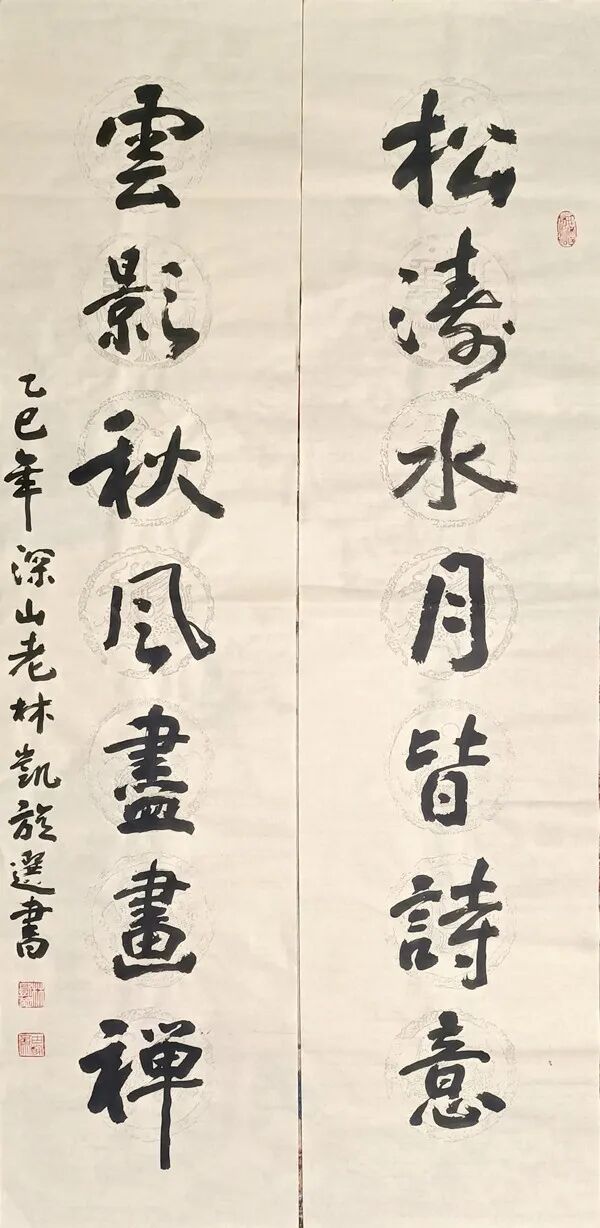 松濤水月皆詩意
雲影秋风盡畫禅
乙巳年深山老林凱旋選書